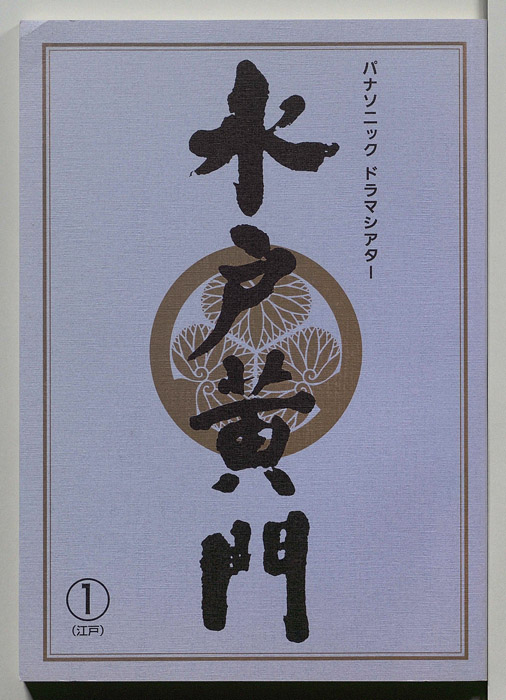 パナソニック ドラマシアター
水戸黄門
1
(江戸)